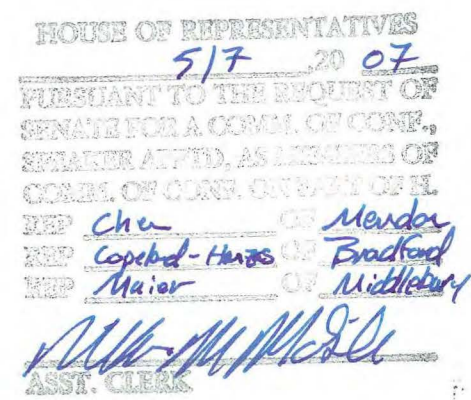 HOUSE OF REPRESENTATIVES
5/7 ,20 07
PURSUANT TO THE REQUEST OF
SENATE FOR A COMM. OF CONF.,
SPEAKER APPTD. AS MEMBERS OF
COMM. OF CONF. ON PART OF H.
REP Chen OF Mendon
REP Copeland-Hanzas OF Bradford
REP Maier OF Middlebury
ASST. CLERK